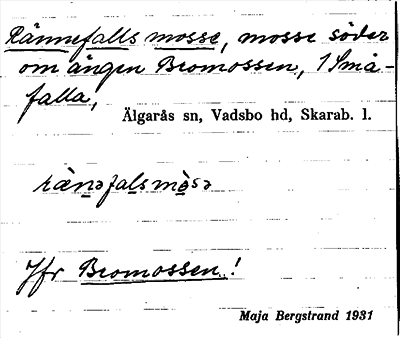 Rännefalls mosse, mosse söder
om ängen Bromossen, 1 Små-
falla,
Älgarås sn, Vadsbo hd, Skarab. l.
rä̀nəfalsmòsə
Jfr Bromossen!
Maja Bergstrand 1931